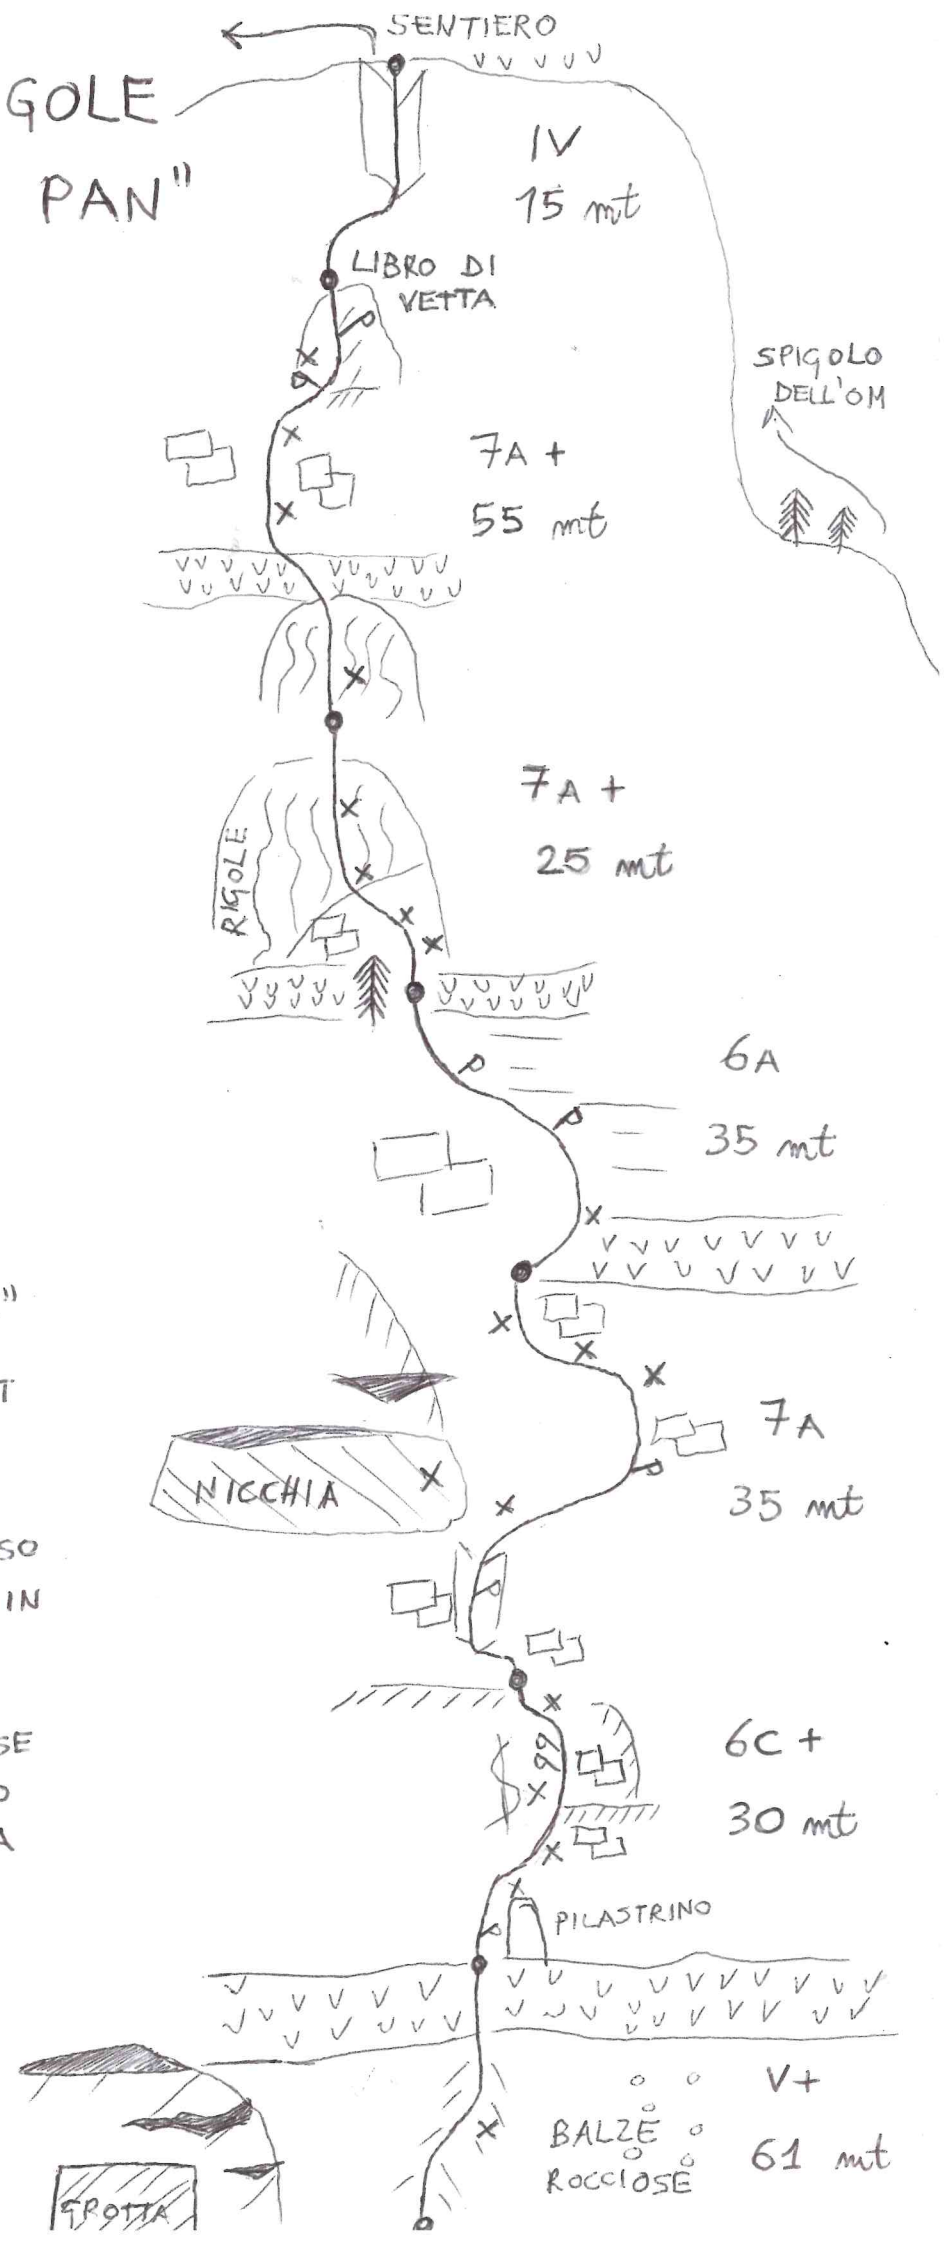 SENTIERO
GOLE
PAN"
IV
15 mt
LIBRO DI
VETTA
SPIGOLO
DELL'OM
7A +
55 mt
7A +
25 mt
RIGOLE
6A
35 mt
"
T
7A
35 mt
NICCHIA
SO
IN
SE
O
A
6C +
30 mt
PILASTRINO
V+
61 mt
BALZE
ROCCIOSE
GROTTA